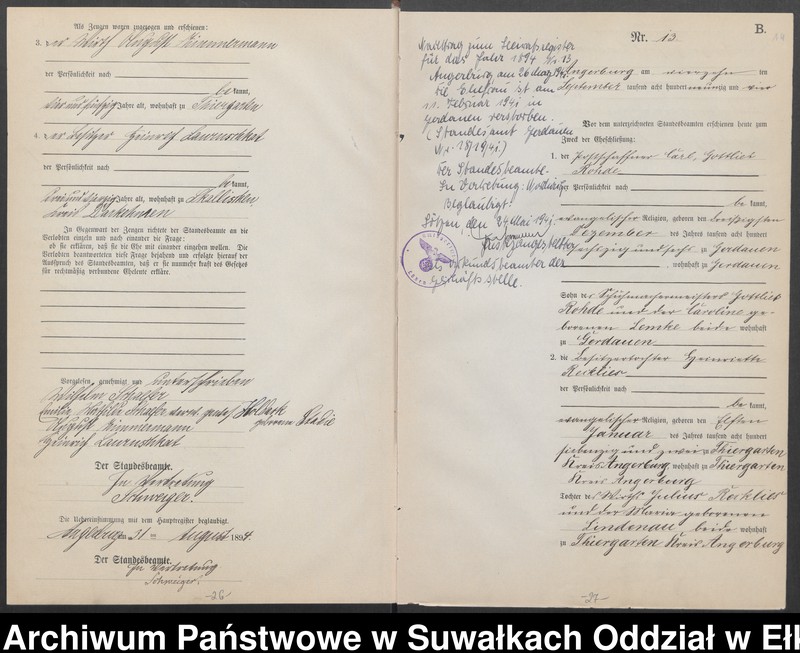 Als Zeugen waren zugezogen und erschienen:
3. der Wirth August Zimmermann
der Persönlichkeit nach
be kannt,
vier und fünfzig Jahre alt, wohnhaft zu Thiergarten
4. der Besitzer Heinrich Lauruschkat
der Persönlichkeit nach
be kannt,
Jahre alt, wohnhaft zu Skallischen
Kreis Darkehmen
In Gegenwart der Zeugen richtete der Standesbeamte an die
Verlobten einzeln und nach einander die Frage:
ob sie erklären, daß sie die Ehe mit einander eingehen wollen. Die
Verlobten beantworteten diese Frage bejahend und erfolgte hierauf der
Ausspruch des Standesbeamten, daß er sie nunmehr kraft des Gesetzes
für rechtmäßig verbundene Eheleute erkläre.
Vorgelesen, genehmigt und unterschrieben
Wilhelm Schäfer
Schäfer geborene Stadie
August Zimmermann
Heinrich Lauruschkat
Der Standesbeamte.
In Vertretung
Schweiger.
Die Uebereinstimmung mit dem Hauptregister beglaubigt.
Angerburg am 31 ten August 1894.
Der Standesbeamte.
In Vertretung
Schweiger.
-26-
B.
Nr. 13
Nachtrag zum Heiratsregister
für das Jahr 1894 Nr. 13
Angerburg am 26 März 1941
Die Ehefrau ist am
11. Februar 1941 in
Gerdauen verstorben.
(Standesamt Gerdauen
Nr. 18/1941)
Der Standesbeamte.
In Vertretung:
Beglaubigt:
Lötzen, den 24 Mai 1941.
Justizangestellter
als Urkundsbeamter der
Geschäftsstelle.
Angerburg am vierzehn ten
September tausend acht hundert neunzig und vier
Vor dem unterzeichneten Standesbeamten erschienen heute zum
Zweck der Eheschließung:
1. der Postschaffner Carl, Gottlieb
Rohde
der Persönlichkeit nach
be kannt,
evangelischer Religion, geboren den dreißigsten
Dezember des Jahres tausend acht hundert
sechszig und sechs zu Gerdauen
, wohnhaft zu Gerdauen
Sohn des Schuhmachermeisters Gottlieb
Rohde und der Caroline ge-
borenen Lemke beide wohnhaft
zu Gerdauen
2. die Besitzertochter Henriette
Recklies
der Persönlichkeit nach
be kannt,
evangelischer Religion, geboren den elften
Januar des Jahres tausend acht hundert
siebenzig und zwei zu Thiergarten
Kreis Angerburg, wohnhaft zu Thiergarten
Kreis Angerburg
Tochter des Wirths Julius Recklies
und der Maria geborenen
Lindenau beide wohnhaft
zu Thiergarten Kreis Angerburg
-27-
Archiwum Państwowe w Suwałkach Oddział w Ełk